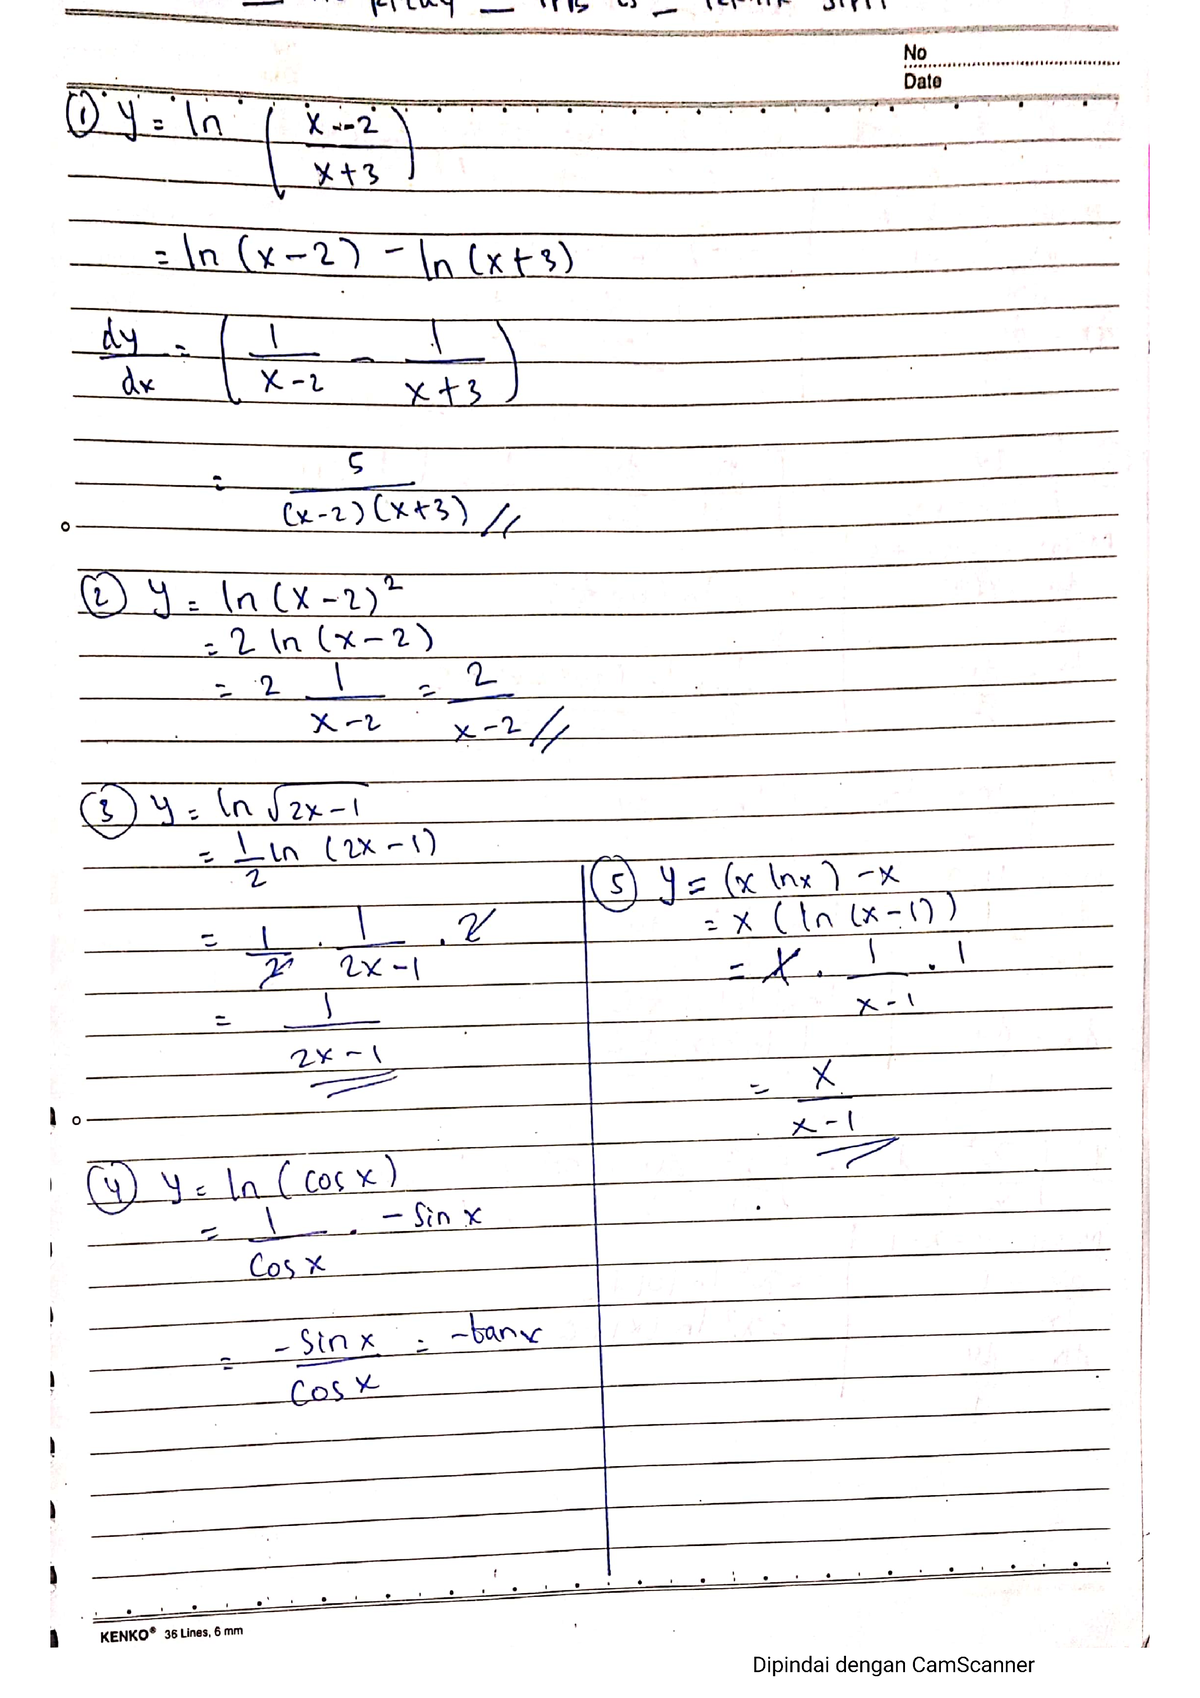 No
Date
① y = ln ( x - 2 / x + 3 )
= ln (x - 2) - ln (x + 3)
dy/dx = ( 1 / x - 2 - 1 / x + 3 )
= 5 / (x - 2)(x + 3) //
② y = ln (x - 2)²
= 2 ln (x - 2)
= 2 1 / x - 2 = 2 / x - 2 //
③ y = ln √2x - 1
= 1/2 ln (2x - 1)
= 1/2 . 1 / 2x - 1 . 2
= 1 / 2x - 1
④ y = ln (cos x)
= 1 / cos x . - sin x
= - sin x / cos x = - tan x
⑤ y = (x ln x) - x
= x (ln (x - 1))
= x . 1 / x - 1 . 1
= x / x - 1
KENKO® 36 Lines, 6 mm
Dipindai dengan CamScanner